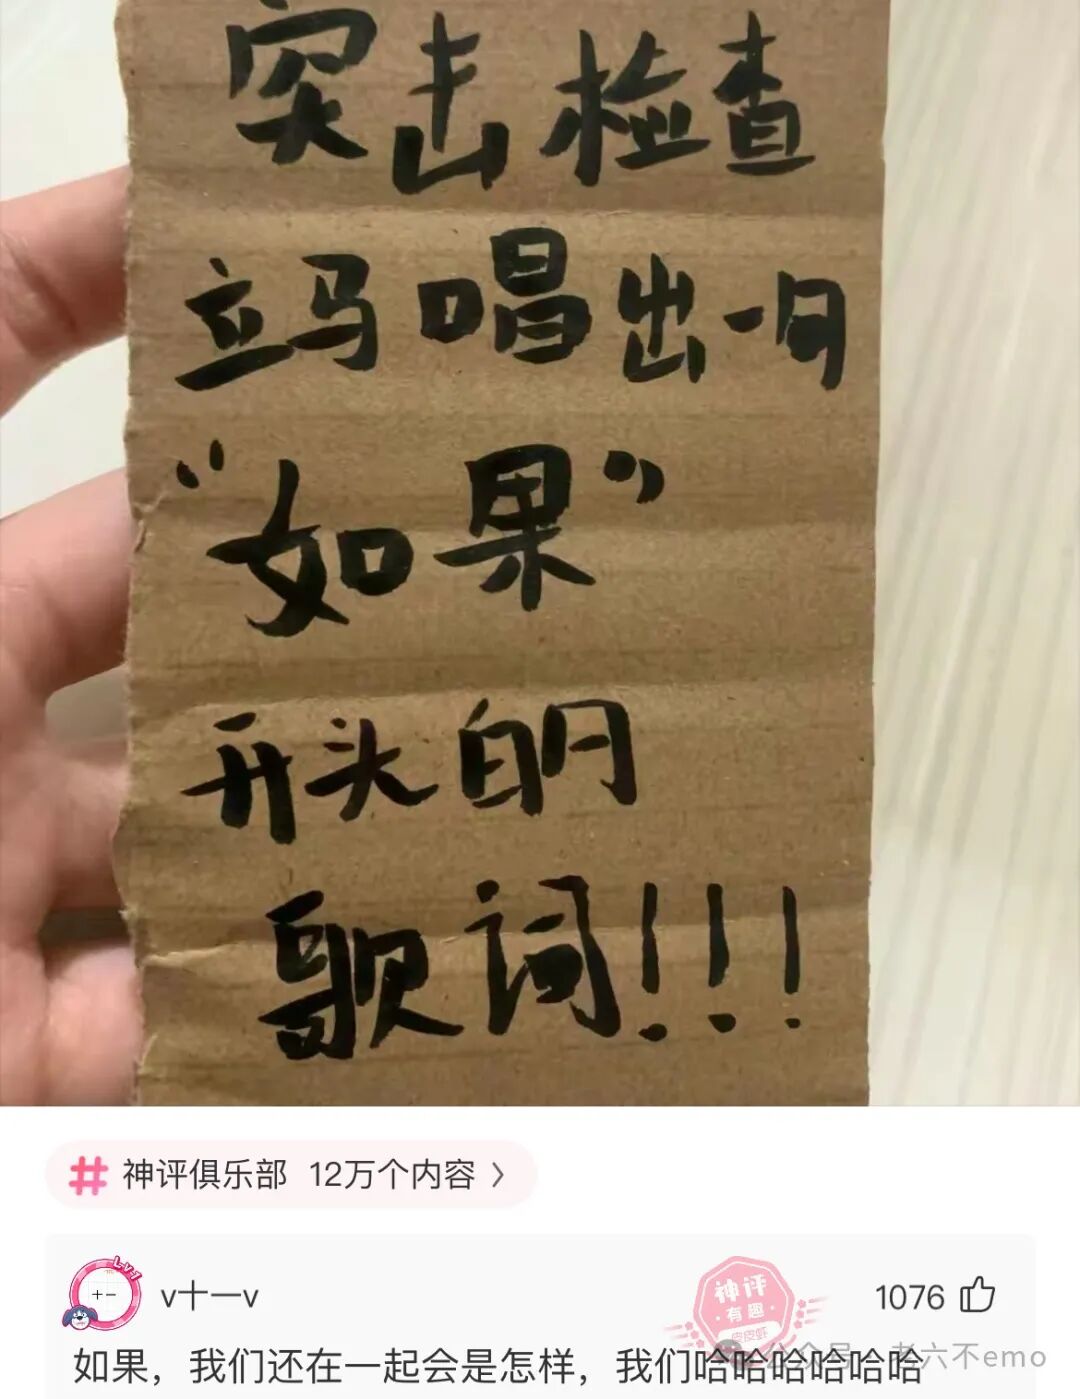 突击检查
立马唱出一句
“如果”
开头的
歌词!!!
# 神评俱乐部 12万个内容 >
Lv1
v十一v
神评
有趣
皮皮虾
1076
如果，我们还在一起会是怎样，我们哈哈哈哈哈哈
公众号 老六不emo